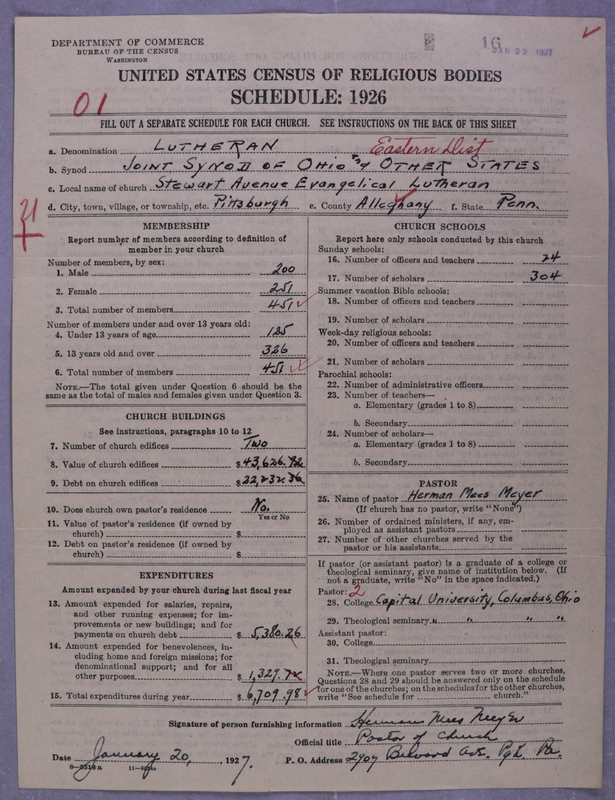 DEPARTMENT OF COMMERCE
BUREAU OF THE CENSUS
WASHINGTON
16
JAN 22 1927
UNITED STATES CENSUS OF RELIGIOUS BODIES
SCHEDULE: 1926
01
FILL OUT A SEPARATE SCHEDULE FOR EACH CHURCH. SEE INSTRUCTIONS ON THE BACK OF THIS SHEET
a. Denomination LUTHERAN Eastern Dist
b. Synod JOINT SYNOD OF OHIO and OTHER STATES
c. Local name of church Stewart Avenue Evangelical Lutheran
d. City, town, village, or township, etc. Pittsburgh e. County Alleghany f. State Penn.
MEMBERSHIP
Report number of members according to definition of member in your church
Number of members, by sex:
1. Male 200
2. Female 251
3. Total number of members 451
Number of members under and over 13 years old:
4. Under 13 years of age 125
5. 13 years old and over 326
6. Total number of members 451
NOTE.—The total given under Question 6 should be the same as the total of males and females given under Question 3.
CHURCH BUILDINGS
See instructions, paragraphs 10 to 12
7. Number of church edifices Two
8. Value of church edifices $43,626.92
9. Debt on church edifices $22,232.36
10. Does church own pastor's residence No.
Yes or No
11. Value of pastor's residence (if owned by church) $
12. Debt on pastor's residence (if owned by church) $
EXPENDITURES
Amount expended by your church during last fiscal year
13. Amount expended for salaries, repairs, and other running expenses; for improvements or new buildings; and for payments on church debt $5,380.26
14. Amount expended for benevolences, including home and foreign missions; for denominational support; and for all other purposes $1,329.72
15. Total expenditures during year $6,709.98
CHURCH SCHOOLS
Report here only schools conducted by this church
Sunday schools:
16. Number of officers and teachers 24
17. Number of scholars 304
Summer vacation Bible schools:
18. Number of officers and teachers
19. Number of scholars
Week-day religious schools:
20. Number of officers and teachers
21. Number of scholars
Parochial schools:
22. Number of administrative officers
23. Number of teachers—
a. Elementary (grades 1 to 8)
b. Secondary
24. Number of scholars—
a. Elementary (grades 1 to 8)
b. Secondary
PASTOR
25. Name of pastor Herman Mees Meyer
(If church has no pastor, write "None")
26. Number of ordained ministers, if any, employed as assistant pastors
27. Number of other churches served by the pastor or his assistants
If pastor (or assistant pastor) is a graduate of a college or theological seminary, give name of institution below. (If not a graduate, write "No" in the space indicated.)
Pastor: 2
28. College Capital University, Columbus, Ohio
29. Theological seminary " " " "
Assistant pastor:
30. College
31. Theological seminary
NOTE.—Where one pastor serves two or more churches, Questions 28 and 29 should be answered only on the schedule for one of the churches; on the schedules for the other churches, write "See schedule for church."
Signature of person furnishing information Herman Mees Meyer
Official title Pastor of Church
Date January 20, 1927. P. O. Address 2907 Pgh. Pa.